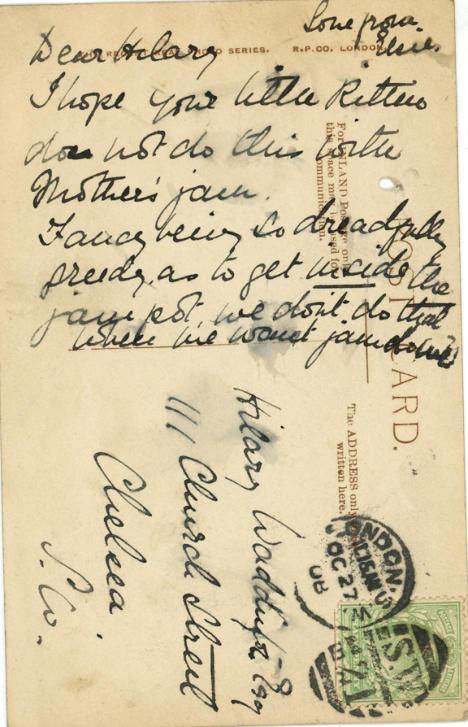 Love from
Dear Hilary
PHOTO SERIES. R.P.CO, LONDON.
I hope your little Kitten
does not do this with
Mother's jam.
Fancy being so dreadfully
greedy as to get inside the
jam pot. we don't do that
when we want jam do we?
POST CARD.
For INLAND Postage only
this space may be used for
communication.
The ADDRESS only
written here.
Hilary Esq
111 Church Street
Chelsea.
S.W.
LONDON. S.W.
OC 27
08
S.W.